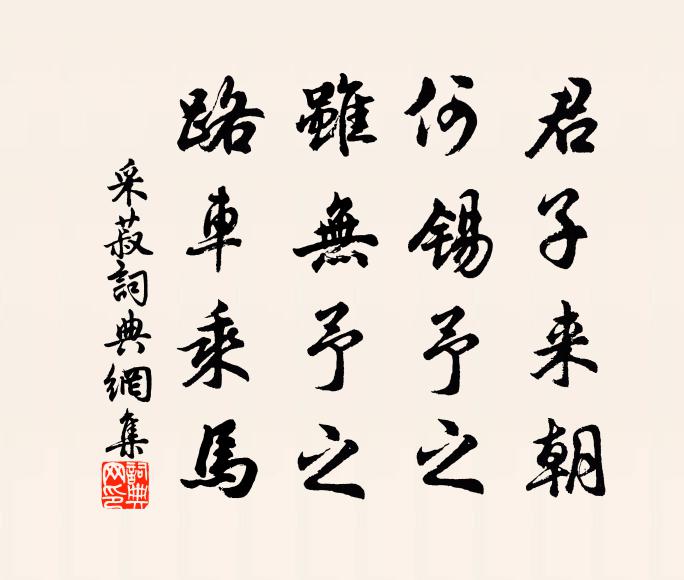 君子来朝
何錫予之
雖無予之
路車乘馬
采菽詞典網集
詞典網印